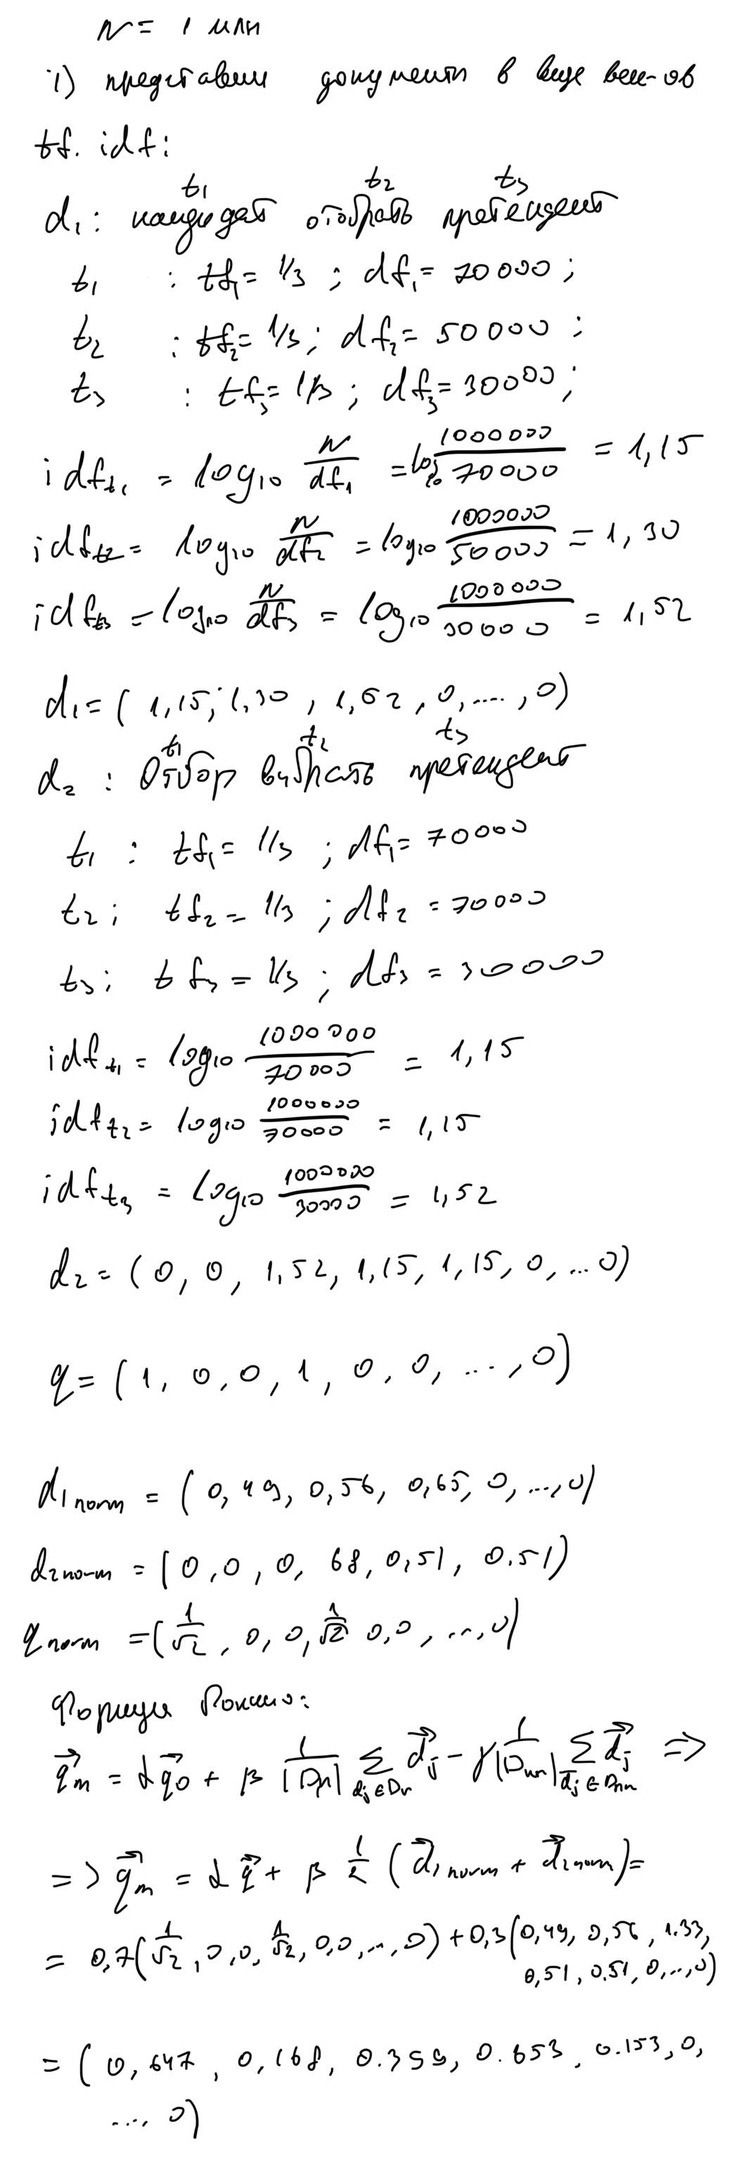 N = 1 млн
1) представим документы в виде век-ов
tf. idf:
t1 t2 t3
d1: кандидат отобрать претендент
t1 : tf1 = 1/3 ; df1 = 70000 ;
t2 : tf2 = 1/3 ; df2 = 50000 ;
t3 : tf3 = 1/3 ; df3 = 30000 ;
idft1 = log10 N/df1 = log10 1000000/70000 = 1,15
idft2 = log10 N/df2 = log10 1000000/50000 = 1,30
idft3 = log10 N/df3 = log10 1000000/30000 = 1,52
d1 = (1,15; 1,30, 1,52, 0, ...., 0)
t1 t2 t3
d2 : Отбор выбрать претендент
t1 : tf1 = 1/3 ; df1 = 70000
t2 ; tf2 = 1/3 ; df2 = 70000
t3 ; tf3 = 1/3 ; df3 = 30000
idft1 = log10 1000000/70000 = 1,15
idft2 = log10 1000000/70000 = 1,15
idft3 = log10 1000000/30000 = 1,52
d2 = (0, 0, 1,52, 1,15, 1,15, 0, ...0)
q = (1, 0, 0, 1, 0, 0, ..., 0)
d1norm = (0,49, 0,56, 0,65, 0, ..., 0)
d2norm = (0,0, 0, 68, 0,51, 0.51)
qnorm = (1/√2, 0, 0, 1/√2 0,0, ..., 0)
Формула Роккио:
q⃗m = αq⃗0 + β 1/|Dr| ∑dj∈Dr d⃗j − γ 1/|Dnr| ∑dj∈Dnr d⃗j =>
=> q⃗m = αq⃗ + β 1/2 (d⃗1norm + d⃗2norm) =
= 0,7(1/√2, 0, 0, 1/√2, 0,0, ..., 0) + 0,3(0,49, 0,56, 1.33,
0,51, 0.51, 0, ..., 0)
= (0,647, 0,168, 0.399, 0.653, 0.153, 0,
..., 0)